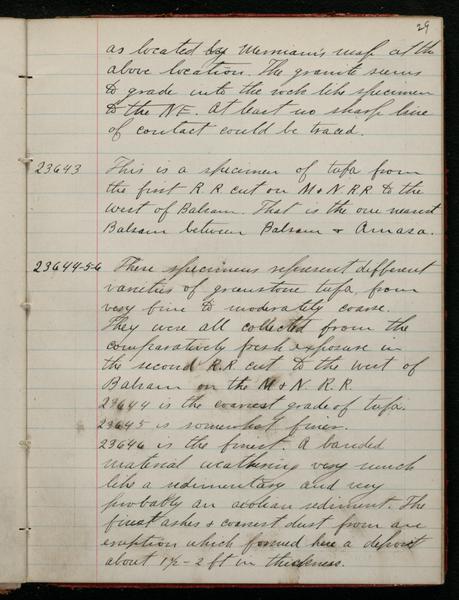 29
as located by Merriam's map at the
above location. The granite seems
to grade into the rock like specimen
to the NE. At least no sharp line
of contact could be traced.
23643 This is a specimen of tufa from
the first R R cut on M & N. R.R. to the
west of Balsam. That is the one nearest
Balsam between Balsam & Amasa.
23644-5-6 These specimens represent different
varieties of greenstone tufa, from
very fine to moderately coarse.
They were all collected from the
comparatively fresh exposure in
the second R.R. cut to the west of
Balsam on the M & N. R. R.
23644 is the coarsest grade of tufa.
23645 is somewhat finer.
23646 is the finest. A banded
material weathering very much
like a sedimentary and very
probably an aeolian sediment. The
finest ashes & coarsest dust from an
eruption which formed here a deposit
about 1½ - 2 ft in thickness.